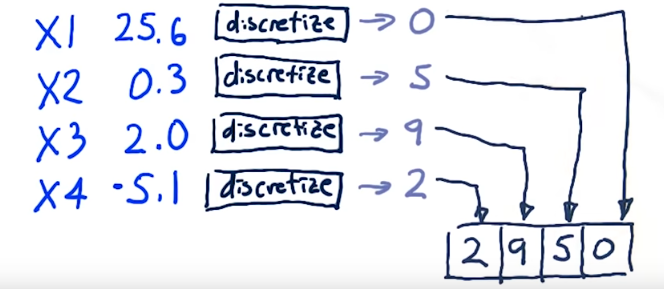 X1 25.6 discretize → 0
X2 0.3 discretize → 5
X3 2.0 discretize → 9
X4 -5.1 discretize → 2
2 9 5 0